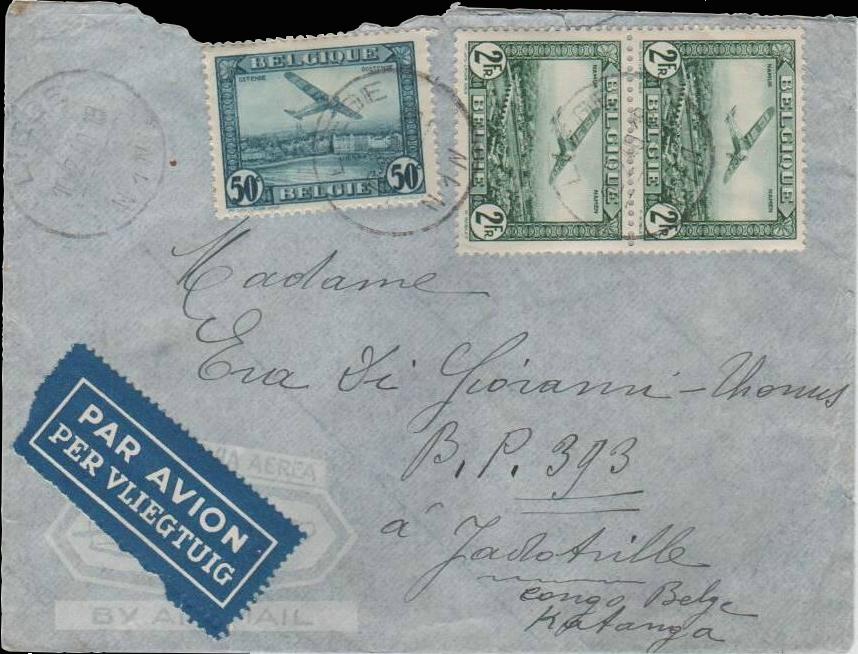 BELGIQUE
OSTENDE OOSTENDE
50c BELGIE 50c
2FR BELGIQUE 2FR
NAMUR NAMEN
BELGIE
2FR BELGIQUE 2FR
NAMUR NAMEN
BELGIE
LIEGE
LIEGE
LIEGE
Madame
Eva Di Giovanni-Thonus
B.P. 393
à Jadotville
Congo Belge
Katanga
PAR AVION
PER VLIEGTUIG
VIA AEREA
BY AIR MAIL